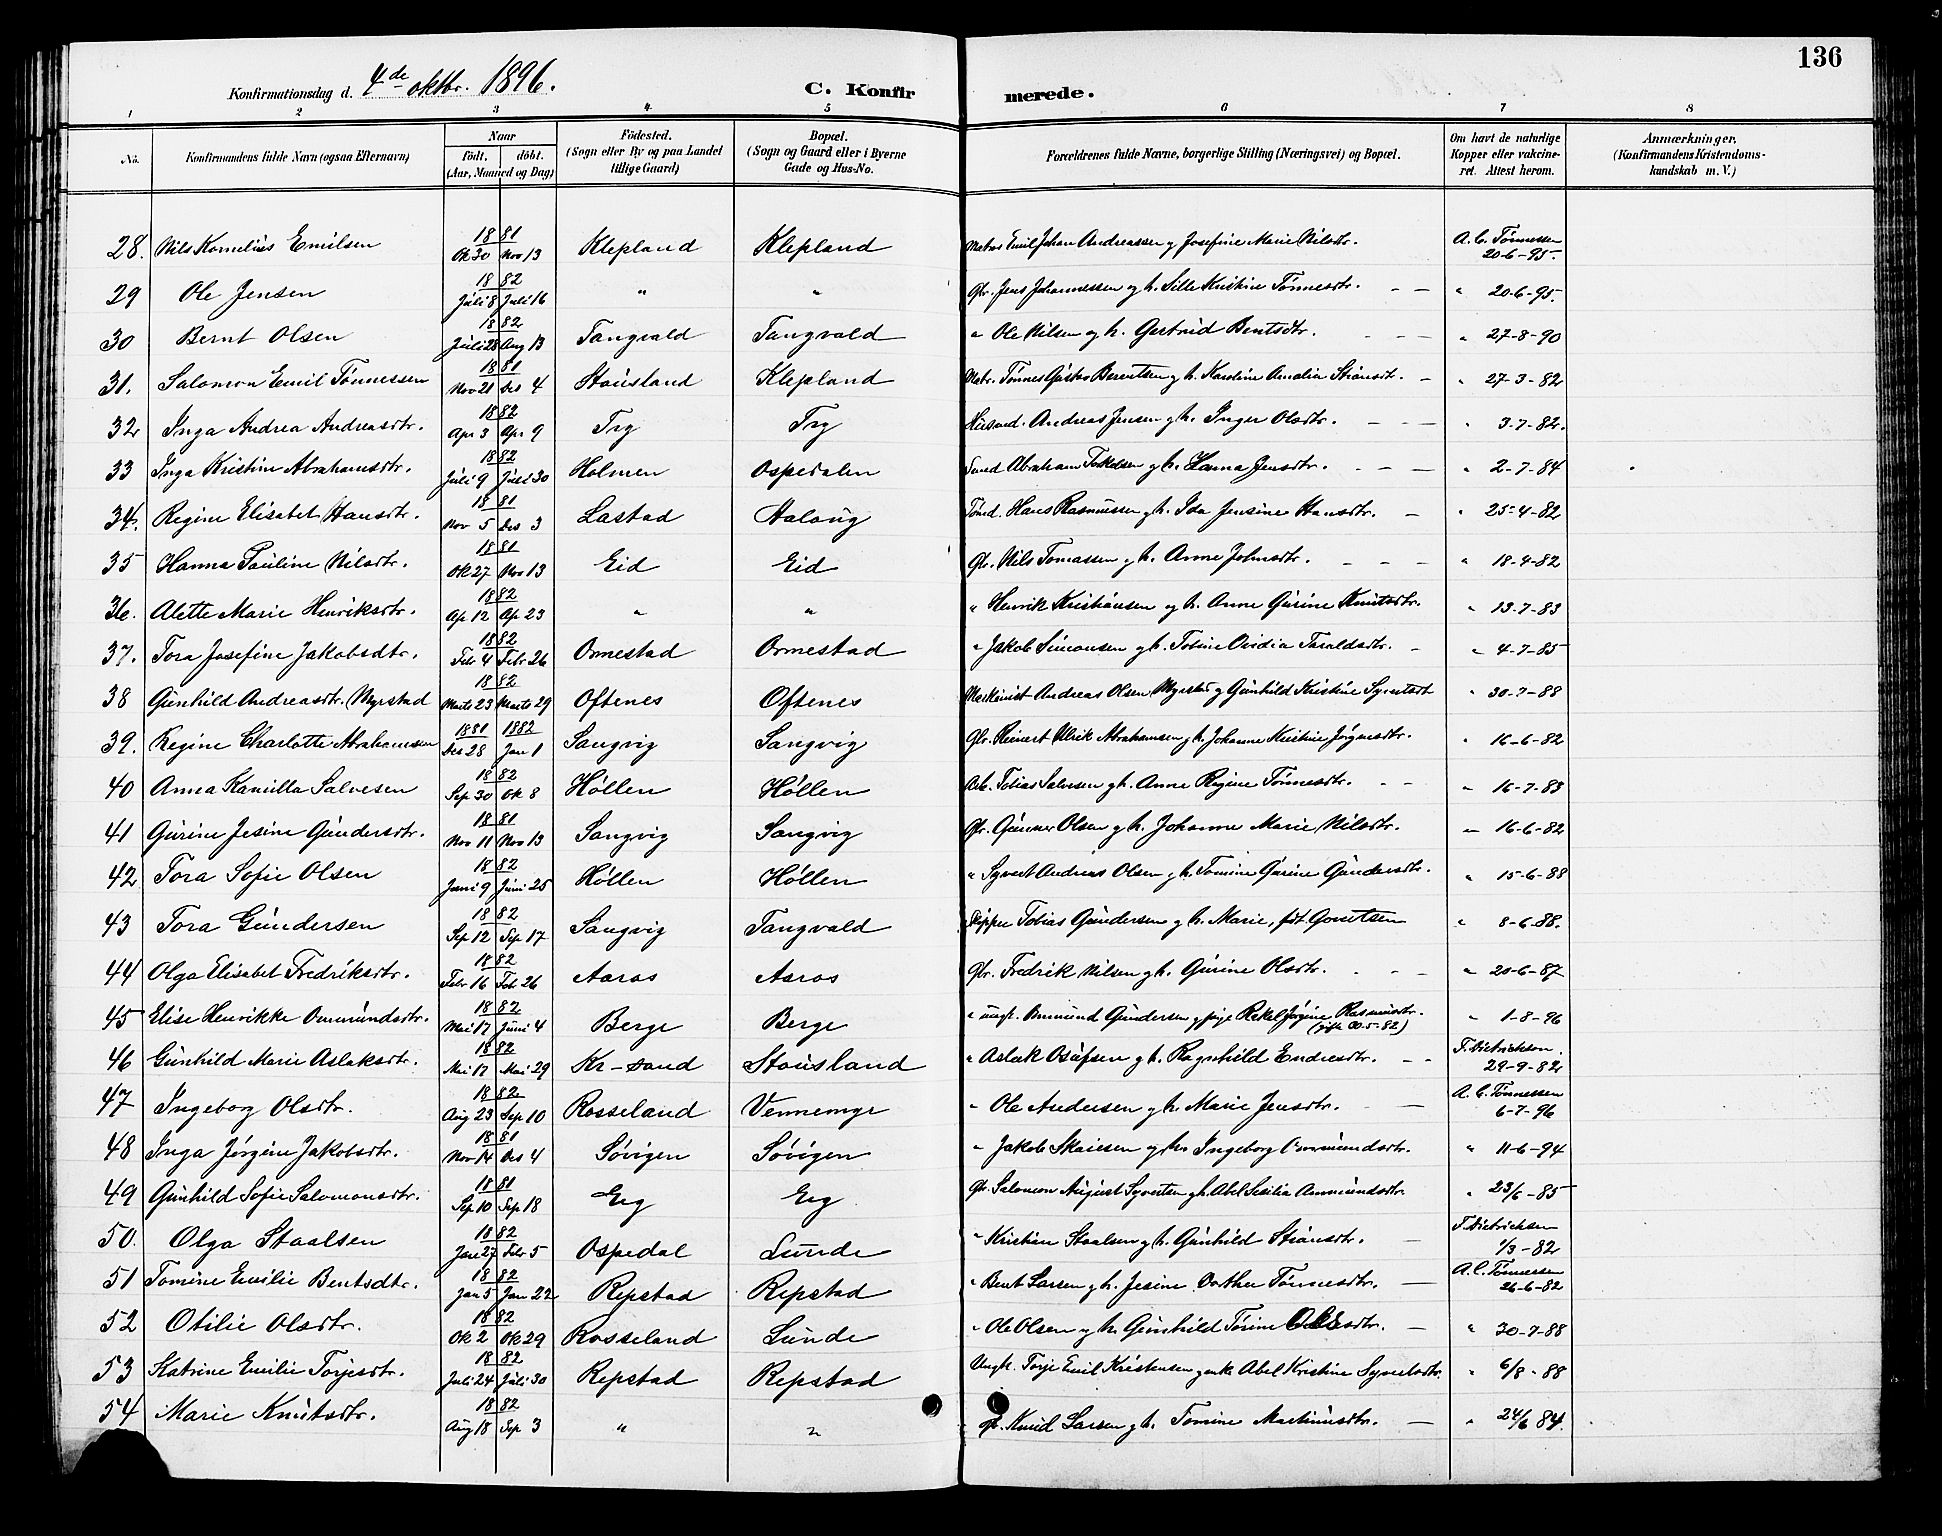 136
Konfirmationsdag d. 4de oktbr. 1896. C. Konfir merede.
1 2 3 4 5 6 7 8
No. Konfirmandens fulde Navn (ogsaa Efternavn) Naar födt. döbt. (Aar, Maaned og Dag) Födested. (Sogn eller By og paa Landet tillige Gaard) Bopæl. (Sogn og Gaard eller i Byerne Gade og Hus-No. Forældrenes fulde Navne, borgerlige Stilling (Næringsvei) og Bopæl. Om havt de naturlige Kopper eller vakcineret. Attest herom. Anmærkninger. (Konfirmandens Kristendomskundskab m. V.)
28. Nils Kornelius Emilsen 1881 Ok 30 Nov 13 Klepland Klepland Matros Emil Johan Andreassen og Josefine Marie Nilsdtr. A. C. Tønnessen 20-6-95.
29 Ole Jensen 1882 Juli 8 Juli 16 " " Gbr. Jens Johannessen og h. Sille Kristine Tønnesdtr. - - " 20-6-95.
30 Bernt Olsen 1882 Juli 28 Aug 13 Tangvald Tangvald " Ole Nilsen og h. Gertrud Bentsdtr. - - - " 27-8-90
31. Salomon Emil Tønnessen 1881 Nov 21 Des 4 Stausland Klepland Matr. Tønnes Gustav Berentsen og h. Karoline Amalia Stiansdt. - " 27-3-82
32 Inga Andrea Andreasdtr. 1882 Apr 3 Apr 9 Try Try Husmd. Andreas Jensen og h. Inger Olsdtr. - - - " 3-7-82.
33 Inga Kristine Abrahamsdtr. 1882 Juli 9 Juli 30 Holmen Ospedalen Smed Abraham Torkelsen og h. Hanna Jensdtr. - - - " 2-7-84
34. Regine Elisabet Hansdtr. 1881 Nov 5 Des 3 Lastad Aalaug Tømd. Hans Rasmussen og h. Ida Jensine Hansdtr. - " 25-4-82
35 Hanna Pauline Nilsdtr. 1881 Ok 27 Nov 13 Eid Eid Gbr. Nils Tomassen og h. Anne Johnsdtr. - - - " 18-4-82
36. Alette Marie Henriksdtr. 1882 Ap 12 Ap 23 " " " Henrik Kristiansen og h. Anne Gurine Knutsdtr. " 13-7-83
37. Tora Josefine Jakobsdtr. 1882 Febr 4 Febr 26 Ormestad Ormestad " Jakob Simonsen og h. Tobine Ovidia Taraldsdtr. - " 4-7-85
38 Gunhild Andreasdtr. Myrstad 1882 Marts 23 Marts 29 Oftenes Oftenes Maskinist Andreas Olsen Myrstad og Gunhild Kristine Syvertsdt " 30-7-88
39. Regine Charlotte Abrahamsen 1881 Des 28 1882 Jan 1 Sangvig Sangvig Gbr. Reinert Ulrik Abrahamsen og h. Johanne Kristine Jørgensdtr. " 16-6-82
40 Anna Kamilla Salvesen 1882 Sep 30 Ok 8 Høllen Høllen Arb. Tobias Salvesen og h. Anne Regine Tønnesdtr. - - " 16-7-83
41 Gurine Jesine Gundersdtr. 1881 Nov 11 Nov 13 Sangvig Sangvig Gbr. Gunner Olsen og h. Johanne Marie Nilsdtr. " 16-6-82
42 Tora Sofie Olsen 1882 Juni 9 Juni 25 Høllen Høllen " Syvert Andreas Olsen og h. Tomine Gurine Gundersdtr. " 15-6-88
43 Tora Gundersen 1882 Sep 12 Sep 17 Sangvig Tangvald Skipper Tobias Gundersen og h. Marie, " 8-6-88.
44 Olga Elisabet Fredriksdtr. 1882 Febr 16 Feb 26 Aaros Aaros Gbr. Fredrik Nilsen og h. Gurine Olsdtr. - - - " 20-6-87
45 Elise Henrikke Ommundsdtr. 1882 Mai 17 Juni 4 Berge Berge " ungk. Ommund Gundersen og pige Rakel Jørgine Rasmusdtr. " 1-8-96
46 Gunhild Marie Aslaksdtr. 1882 Mai 17 Mai 29 Kr-sand Stausland " Aslak Osufsen og h. Ragnhild Endresdtr. - - F. Dietrichson. 29-9-82
47 Ingeborg Olsdtr. 1882 Aug 23 Sep 10 Rosseland Vennemyr " Ole Andersen og h. Marie Jensdtr. - A. C. Tønnessen 6-7-96
48 Inga Jørgine Jakobsdtr. 1881 Nov 14 Des 4 Søvigen Søvigen " Jakob Skaiesen og h. Ingeborg Ommundsdtr. " 11-6-94
49 Gunhild Sofie Salomonsdtr. 1881 Sep 10 Sep 18 Eeg Eeg Gbr. Salomon August Syvertsen og h. Abel Sesilia Ammundsdtr. " 23/6-85
50. Olga Staalsen 1882 Jan 27 Febr 5 Ospedal Lunde " Kristian Staalsen og h. Gunhild Stiansdtr. - F. Dietrichsen 1/3-82
51 Tomine Emilie Bentsdtr. 1882 Jan 5 Jan 22 Repstad Repstad " Bent Larsen og h. Jesine Dorthea Tønnesdtr. - A. C. Tønnessen 26-6-82
52 Otilie Olsdtr. 1882 Ok 2 Ok 29 Rosseland Lunde " Ole Olsen og h. Gunhild Torine Olsdtr. - " 30-7-88
53 Katrine Emilie Torjesdtr. 1882 Juli 24 Juli 30 Repstad Repstad Ungk. Torje Emil Kristensen og enke Abel Kristine Syvertsdtr. " 6/8-88
54 Marie Knutsdtr. 1882 Aug 18 Sep 3 " " Gbr. Knud Larsen og h. Tomine Martinusdtr. - " 24/6 84.